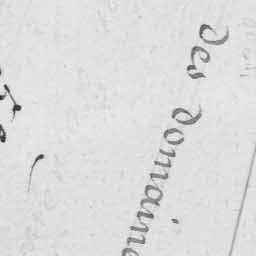 des domaine